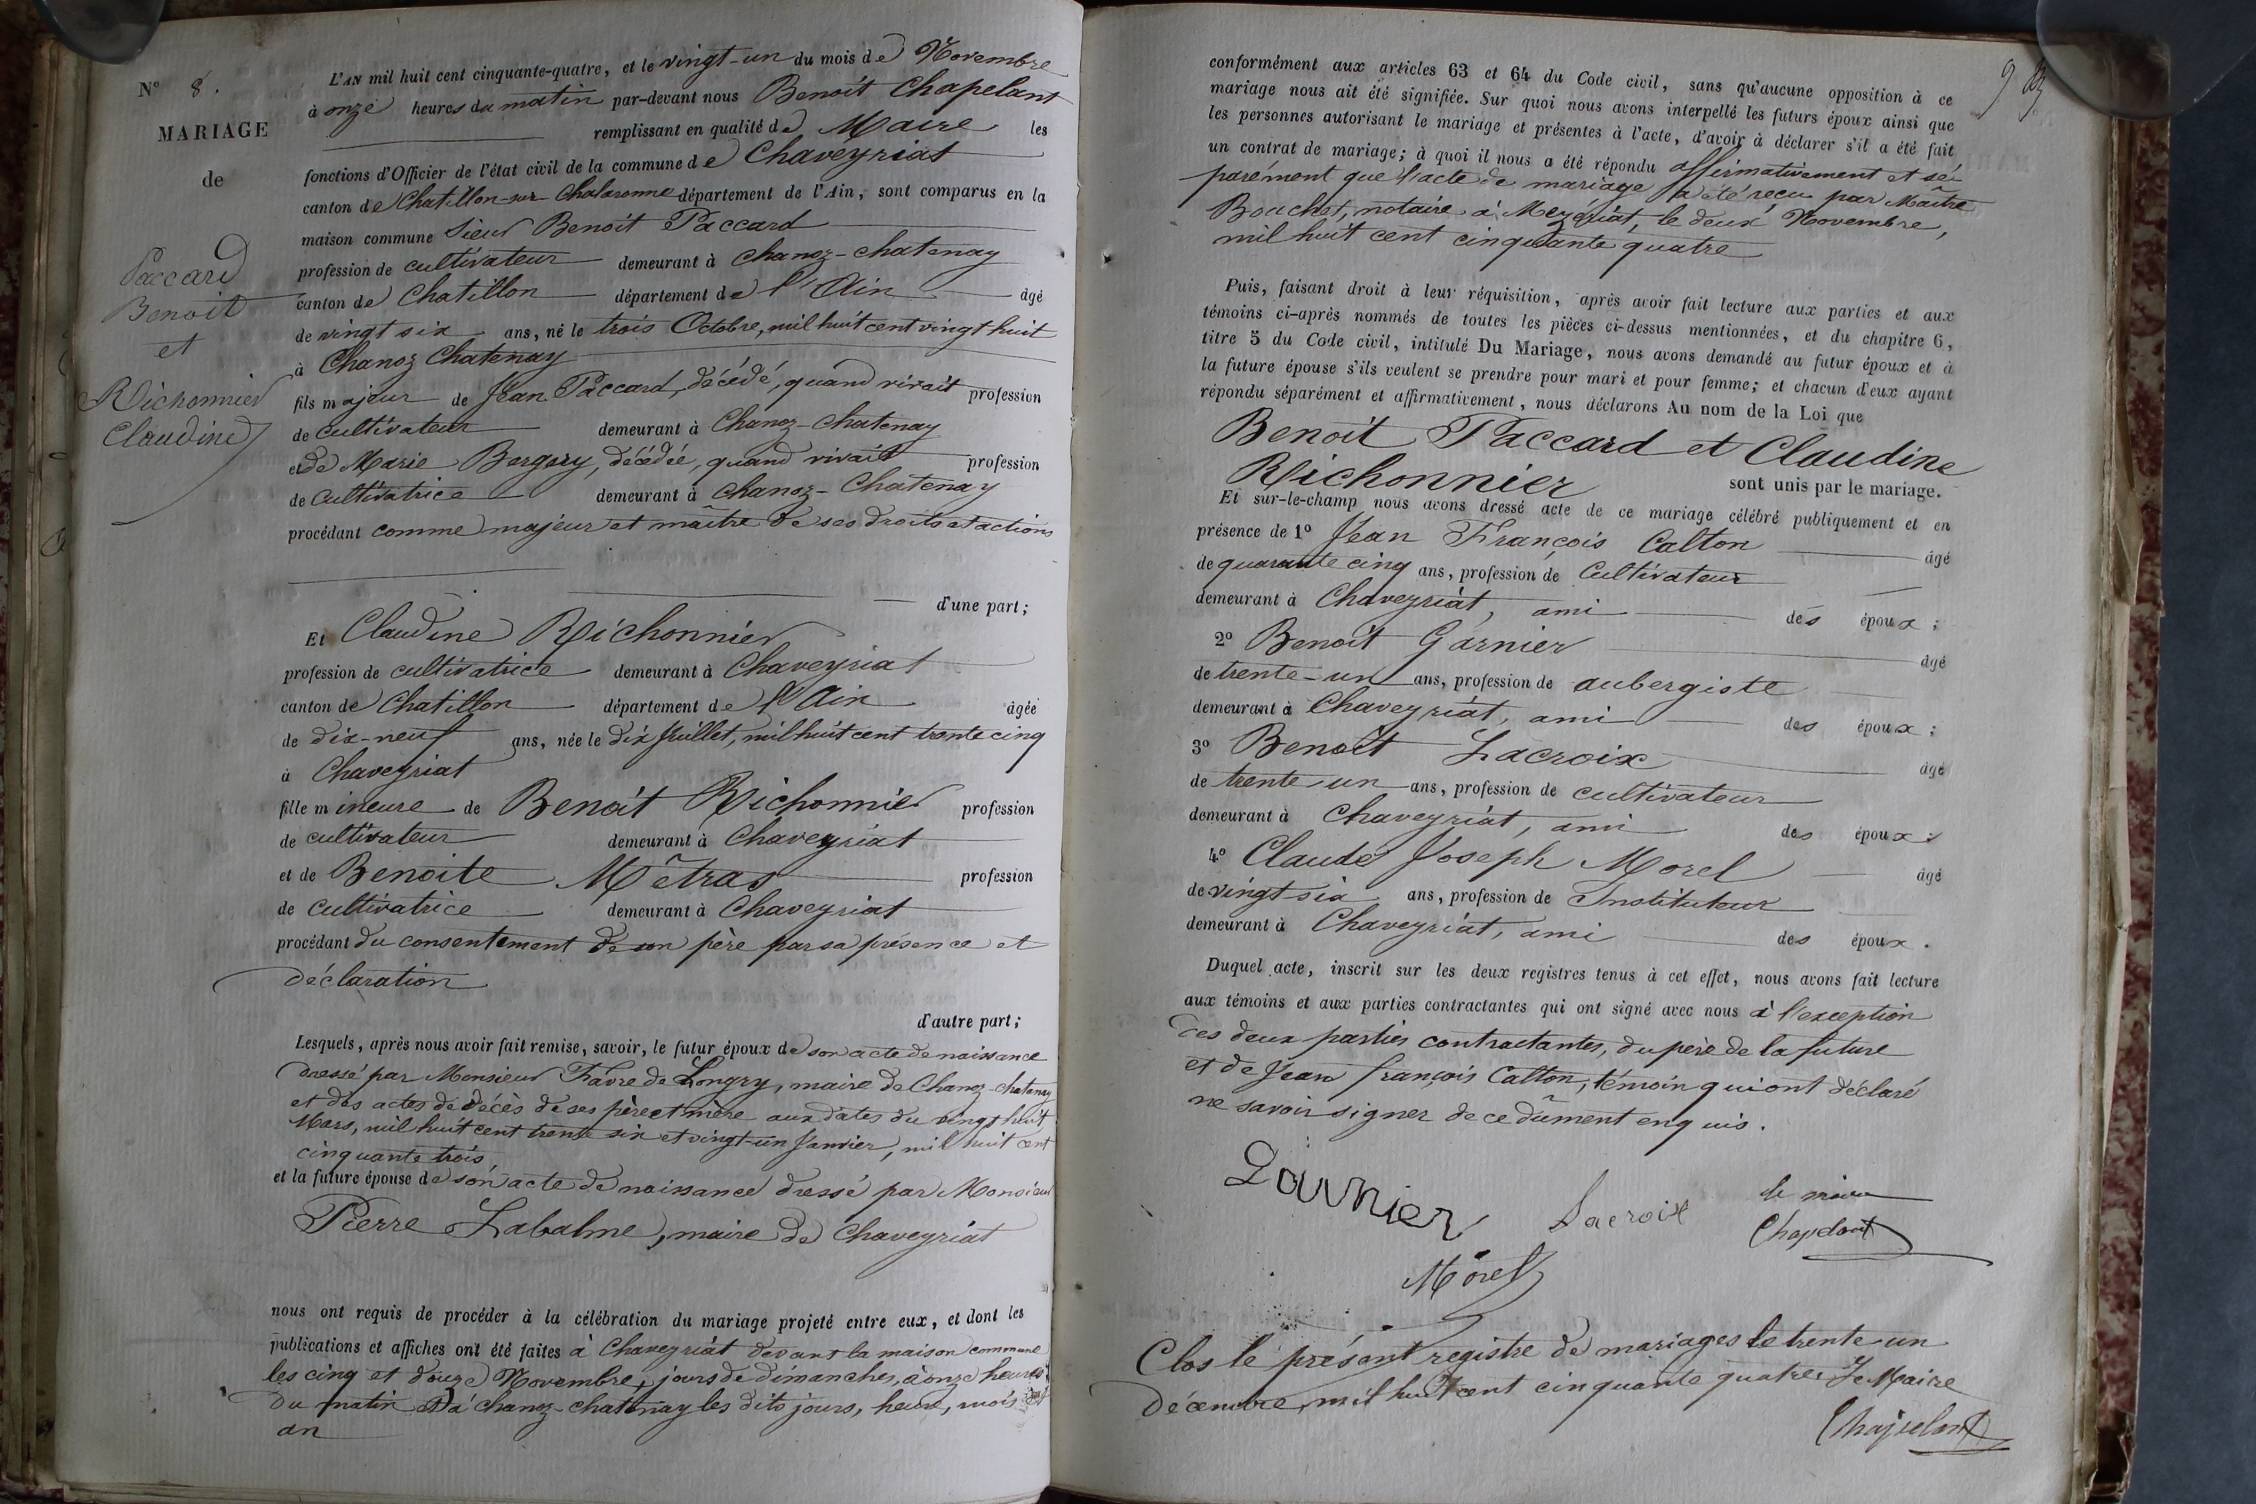 N° 8.
MARIAGE
de
Paccard
Benoit
et
Richonnier
Claudine
L'AN mil huit cent cinquante-quatre, et le vingt-un du mois de Novembre
à onze heures du matin par-devant nous Benoit Chapelant
remplissant en qualité de Maire les
fonctions d'Officier de l'état civil de la commune de Chaveyriat
canton de Chatillon-sur-Chalaronne département de l'Ain, sont comparus en la
maison commune Sieur Benoit Paccard
profession de cultivateur demeurant à Chanoz-Chatenay
canton de Chatillon département de l'Ain âgé
de vingt six ans, né le trois Octobre, mil huit cent vingt huit
à Chanoz Chatenay
fils majeur de Jean Paccard, décédé, quand vivait profession
de cultivateur demeurant à Chanoz-Chatenay
et de Marie Borgery, décédée, quand vivait profession
de cultivatrice demeurant à Chanoz-Chatenay
procédant comme majeur et maître de ses droits et actions
d'une part;
Et Claudine Richonnier
profession de cultivatrice demeurant à Chaveyriat
canton de Chatillon département de l'Ain âgée
de dix-neuf ans, née le dix Juillet, mil huit cent trente cinq
à Chaveyriat
fille mineure de Benoit Richonnier profession
de cultivateur demeurant à Chaveyriat
et de Benoite Métras profession
de cultivatrice demeurant à Chaveyriat
procédant du consentement de son père par sa présence et
déclaration
d'autre part;
Lesquels, après nous avoir fait remise, savoir, le futur époux de son acte de naissance
dressé par Monsieur Favre de Longry, maire de Chanoz-Chatenay
et des actes de décès de ses père et mère aux dates du vingt huit
Mars, mil huit cent trente six et vingt-un Janvier, mil huit cent
cinquante trois,
et la future épouse de son acte de naissance dressé par Monsieur
Pierre Labalme, maire de Chaveyriat
nous ont requis de procéder à la célébration du mariage projeté entre eux, et dont les
publications et affiches ont été faites à Chaveyriat devant la maison commune
les cinq et douze Novembre, jours de dimanches, à onze heures
du matin et à Chanoz-Chatenay les dits jours, heure, mois et
an
conformément aux articles 63 et 64 du Code civil, sans qu'aucune opposition à ce
mariage nous ait été signifiée. Sur quoi nous avons interpellé les futurs époux ainsi que
les personnes autorisant le mariage et présentes à l'acte, d'avoir à déclarer s'il a été fait
un contrat de mariage; à quoi il nous a été répondu affirmativement et sé-
parément que l'acte de mariage a été reçu par Maître
Bouchet, notaire à Mezériat, le deux Novembre,
mil huit cent cinquante quatre
Puis, faisant droit à leur réquisition, après avoir fait lecture aux parties et aux
témoins ci-après nommés de toutes les pièces ci-dessus mentionnées, et du chapitre 6,
titre 5 du Code civil, intitulé Du Mariage, nous avons demandé au futur époux et à
la future épouse s'ils veulent se prendre pour mari et pour femme; et chacun d'eux ayant
répondu séparément et affirmativement, nous déclarons Au nom de la Loi que
Benoit Paccard et Claudine
Richonnier sont unis par le mariage.
Et sur-le-champ nous avons dressé acte de ce mariage célébré publiquement et en
présence de 1° Jean François Catton âgé
de quarante cinq ans, profession de Cultivateur
demeurant à Chaveyriat, ami des époux;
2° Benoit Garnier âgé
de trente-un ans, profession de aubergiste
demeurant à Chaveyriat, ami des époux;
3° Benoit Lacroix âgé
de trente-un ans, profession de cultivateur
demeurant à Chaveyriat, ami des époux;
4° Claude Joseph Morel âgé
de vingt-six ans, profession de Instituteur
demeurant à Chaveyriat, ami des époux.
Duquel acte, inscrit sur les deux registres tenus à cet effet, nous avons fait lecture
aux témoins et aux parties contractantes qui ont signé avec nous à l'exception
des deux parties contractantes, du père de la future
et de Jean François Catton, témoin qui ont déclaré
ne savoir signer de ce dûment enquis.
Garnier Lacroix le maire
Chapelant
Morel
Clos le présent registre de mariages le trente-un
décembre, mil huit cent cinquante quatre. Le Maire
Chapelant